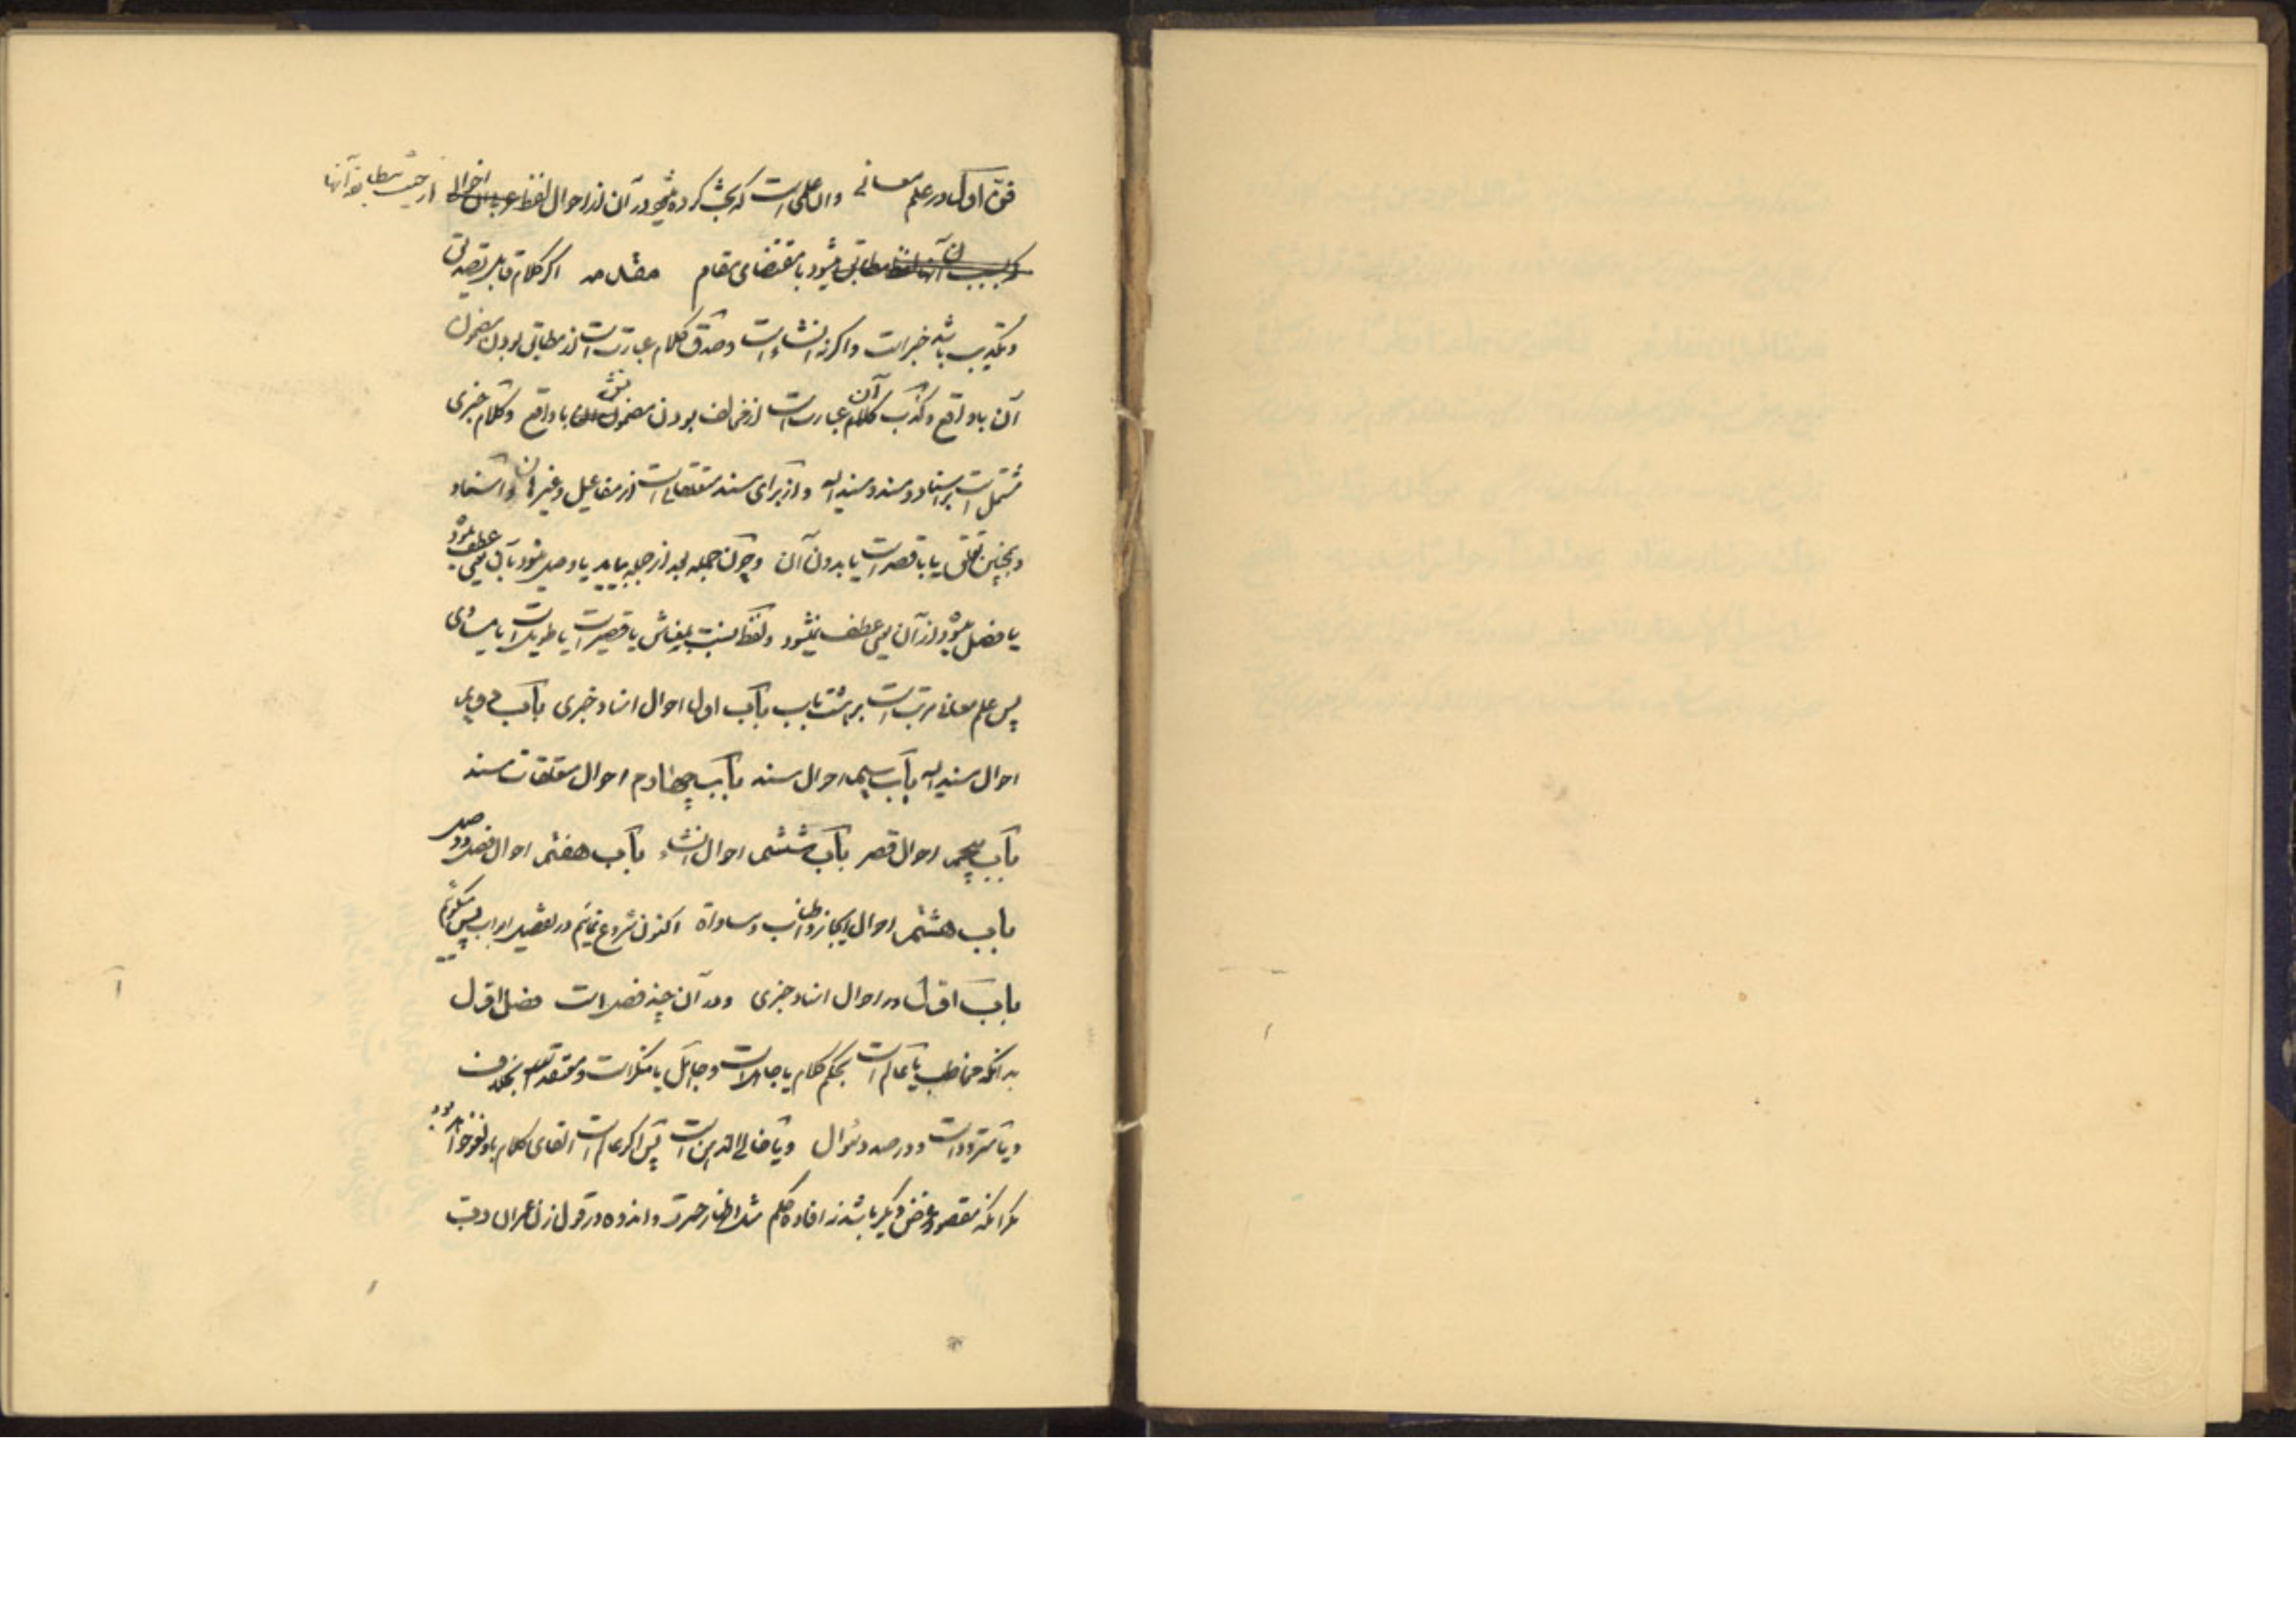 فن اول در علم معانی و ان علمی است که بحث کرده میشود در آن از احوال لفظ عربی از حیث مطابقه آنها
با مقتضای مقام مقدمه اگر کلام قابل تصدیق
و تکذیب باشد خبر است و اگرنه انشاء است و صدق کلام عبارت است از مطابق بودن مضمون
آن با واقع و کذب آن عبارت است از مخالف بودن مضمونش با واقع و کلام خبری
مشتمل است بر اسناد و مسند و مسند الیه و از برای مسند متعلقات است از مفاعیل و غیر ان و اسناد
و همچنین تعلق یا با قصر است یا بدون آن و چون جمله بعد از جمله بیاید یا وصل میشود بآن یعنی عطف میشود
یا فصل میشود از آن یعنی عطف نمیشود و لفظ نسبت بمعناش یا قصیر است یا طویل است یا مساوی
پس علم معانی مرتب است بر هشت باب باب اول احوال اسناد خبری باب دویم
احوال مسند الیه باب سیم احوال مسند باب چهارم احوال متعلقات مسند
باب پنجم احوال قصر باب ششم احوال انشاء باب هفتم احوال فصل و وصل
باب هشتم احوال ایجاز و اطناب و مساواة اکنون شروع نمائیم در تفصیل ابواب پس میگوئیم
باب اول در احوال اسناد خبری و در آن چند فصل است فصل اول
بدانکه مخاطب یا عالم است بحکم کلام یا جاهل است و جاهل یا منکر است و معتقد بخلاف
و یا متردد است و در صدد سؤال و یا خالی الذهن است پس اگر عالم است القای کلام باو لغو خواهد بود
مگر آنکه مقصود غرض دیگر باشد نه افاده حکم مثل اظهار حسرت و اندوه در قول زن عمران رب